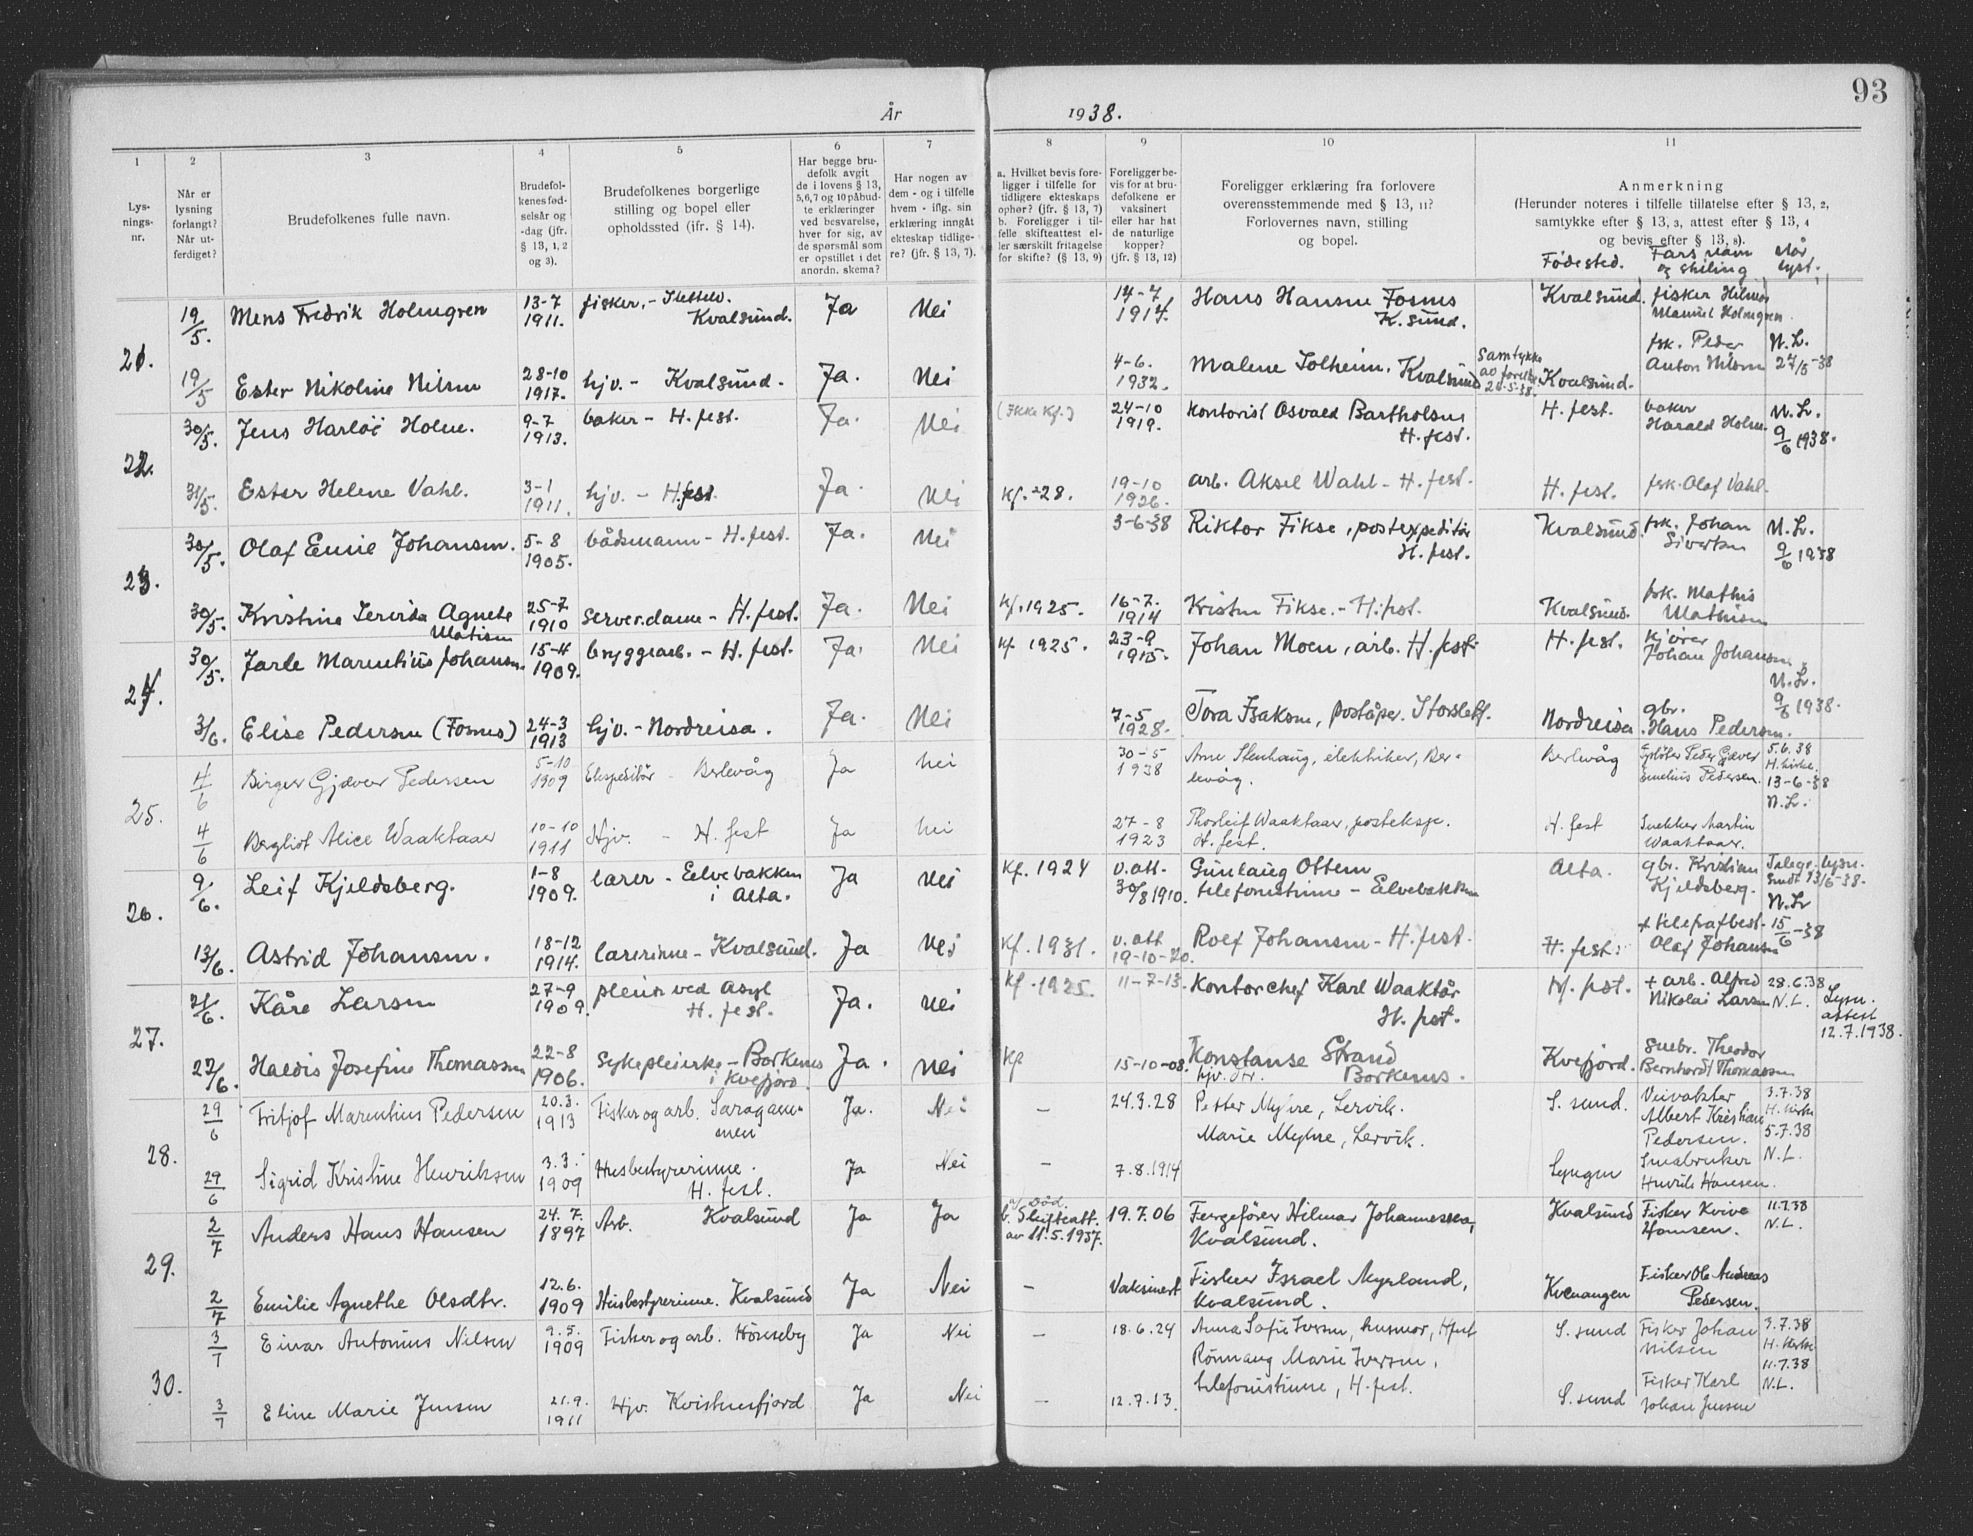 93
År 1938.
1 2 3 4 5 6 7 8 9 10 11
Lys-
nings-
nr.
Når er
lysning
forlangt?
Når ut-
ferdiget?
Brudefolkenes fulle navn.
Brudefol-
kenes fød-
selsår og
-dag (jfr.
§ 13, 1, 2
og 3).
Brudefolkenes borgerlige
stilling og bopel eller
opholdssted (jfr. § 14).
Har begge bru-
defolk avgit
de i lovens § 13,
5,6,7 og 10 påbud-
te erklæringer
ved besvarelse,
hver for sig, av
de spørsmål som
er opstillet i det
anordn. skema?
Har nogen av
dem - og i tilfelle
hvem - iflg. sin
erklæring inngått
ekteskap tidlige-
re? (jfr. § 13, 7).
a. Hvilket bevis fore-
ligger i tilfelle for
tidligere ekteskaps
ophør? (jfr. § 13, 7)
b. Foreligger i til-
felle skifteattest el-
ler særskilt fritagelse
for skifte? (§ 13, 9)
Foreligger be-
vis for at bru-
defolkene er
vaksinert
eller har hat
de naturlige
kopper?
(jfr. § 13, 12)
Foreligger erklæring fra forlovere
overensstemmende med § 13, 11?
Forlovernes navn, stilling
og bopel.
Anmerkning
(Herunder noteres i tilfelle tillatelse efter § 13, 2,
samtykke efter § 13, 3, attest efter § 13, 4
og bevis efter § 13, 8).
Fødested. Fars navn
og stilling Når
lyst.
21.
19/5. Mens Fredrik Holmgren 13-7
1911. fisker, -
Kvalsund. Ja Nei 14-7
1914. Hans Hansen Fosnes
K.sund. Kvalsund. fisker Hilmar
Manuel Holmgren.
19/5 Ester Nikoline Nilsen 28-10
1917. hjv. - Kvalsund. Ja. Nei 4-6.
1932. Malene Solheim, Kvalsund Samtykke
av foreldre
Kvalsund. fsk. Peder
Anton Nilsen N.L.
27/5-38
22.
30/5. Jens Harloi Holm. 9-7
1913. baker - H.fest. Ja. Nei (Ikke Kf.) 24-10
1919. Kontorist Osvald Bartholsen
H.fest. H.fest. baker
Harald Holm. N.L.
9/6 1938.
31/5. Ester Helene Vahl. 3-1
1911. hjv. - H.fest. Ja. Nei Kf.-28. 19-10
1926. arb. Aksel Wahl - H.fest. H.fest. fsk. Olaf Vahl.
23.
30/5. Olaf Emil Johansen. 5-8
1905. bådsmann - H.fest. Ja. Nei 3-6-38 Riktor Fikse, postexpeditør
H.fest. Kvalsund. fsk. Johan
Sivertsen N.L.
9/6 1938
30/5. Kristine Agnete
Matisen 25-7
1910 server.dame - H.fest. Ja. Nei Kf.1925. 16-7.
1914 Kristen Fikse. - H.fest. Kvalsund. fsk. Mathis
Mathisen
24.
30/5. Jarle Marentius Johansen 15-4
1909. bryggearb. - H.fest. Ja. Nei Kf 1925. 23-9
1915. Johan Moen, arb. H.fest. H.fest. kjører
Johan Johansen
N.L.
9/6 1938.
3/6. Elise Pedersen (Fosnes) 24-3
1913 hjv. - Nordreisa. Ja. Nei 7-5
1928. Tora Isaksen, poståper. Storslett. Nordreisa. gbr.
Hans Pedersen.
25.
4/6 Birger Gjæver Pedersen 5-10
1909 Ekspeditør - Berlevåg Ja Nei 30-5
1938 Arne Stenhaug, elektriker, Ber-
levåg. Berlevåg Peder Gjæver
Emelius Pedersen. 5.6.38
H.kirke.
13-6-38
N.L.
4/6 Bergliot Alice Waaktaar 10-10
1911 Hjv. - H.fest Ja Nei 27-8
1923 Thorleif Waaktaar, posteksp.
H.fest. H.fest Snekker Martin
Waaktaar.
26.
9/6. Leif Kjeldsberg. 1-8
1909. lærer - Elvebakken
i Alta. Ja Nei Kf. 1924 v.att.
30/8 1910. Gunlaug Ottem
telefonistinne - Elvebakken Alta. gbr. Kristian
Kjeldsberg. Telegr. lysn.
sendt 13/6-38.
N.L
15/6-38
13/6. Astrid Johansen. 18-12
1914. lærerinne - Kvalsund. Ja Nei Kf. 1931. v.att
19-10-20. Rolf Johansen - H.fest. H.fest. + telegrafbest.
Olaf Johansen
27.
21/6. Kåre Larsen 27-9
1909. pleier ved Asyl
H.fest. Ja. Nei Kf. 1925. 11-7-13. Kontorchef Karl Waaktår
H.fest. H.fest. + arb. Alfred
Nikolai Larsen 28.6.38
N.L. Lysn.
attest
12.7.1938.
22/6. Haldis Josefine Thomassen 22-8
1906. Sykepleierske - Borkenes
i Kvefjord. Ja. Nei Kf 15-10-08. Konstanse Strand
Borkenes. Kvefjord. Theodor
Bernhardt Thomassen
28.
29/6 Fritjof Marentius Pedersen 20.3.
1913 Fisker og arb. Saragam-
men Ja. Nei - 24.3.28 Petter Myhre, Lervik.
Marie Myhre, Lervik. S.sund. Veivokter
Albert Kristian
Pedersen. 3.7.38
H.kirke
5.7.38
N.L.
29/6 Sigrid Kristine Henriksen 3.3.
1909 Husbestyrerinne.
H.fest. Ja Nei - 7.8.1914 Lyngen Småbruker
Henrik Hansen.
29.
2/7 Anders Hans Hansen 24.7.
1897 Arb. Kvalsund Ja Ja a/ Død.
b. Skifteatt.
av 11.5.1937. 19.7.06 Fergefører Hilmar Johannessen,
Kvalsund. Kvalsund Fisker Kvive
Hansen. 11.7.38
N.L.
2/7 Emilie Agnethe Olsdtr. 12.6.
1909 Husbestyrerinne. Kvalsund Ja Nei - Vaksinert Fisker Israel Myrland,
Kvalsund. Kvenangen Fisker Ole Andreas
Pedersen.
30.
3/7 Einar Antonius Nilsen 9.5.
1909 Fisker og arb. Hønseby Ja Nei - 18.6.24 Anna Sofie Iversen, husmor, H.fest
Rønnaug Marie Iversen,
telefonistinne, H.fest. S.sund Fisker Johan
Nilsen 3.7.38
H.kirke
11.7.38
N.L.
3/7 Eline Marie Jensen 21.9.
1911 Hjv. Kvithusfjord Ja Nei - 12.7.13. S.sund Fisker Karl
Johan Jensen